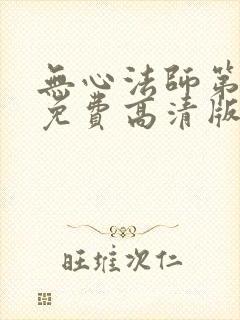 無心法師第
免費高清版
旺堆次仁